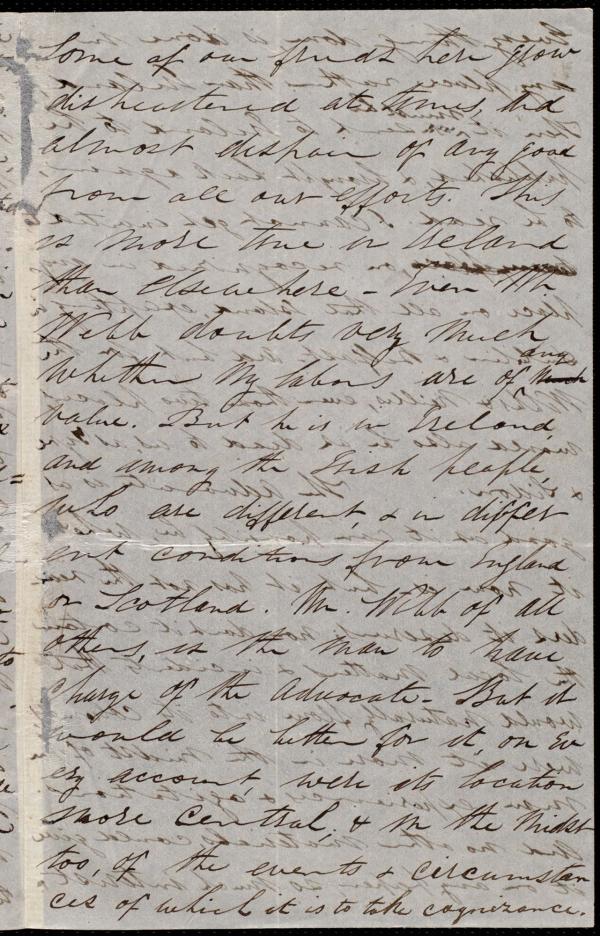 Some of our friends here grow
disheartened at times, and
almost despair of any good
from all our efforts. This
is more true in Ireland
than elsewhere - Even Mr.
Webb doubts very much
whether my labors are of any much
value. But he is in Ireland,
and among the Irish people,
who are different, & in differ
ent conditions from England
or Scotland. Mr. Webb of all
others, is the man to have
charge of the Advocate - But it
would be better for it, on ev
ery account, were its location
more central, & in the midst
too, of the events & circumstan
ces of which it is to take cognizance.